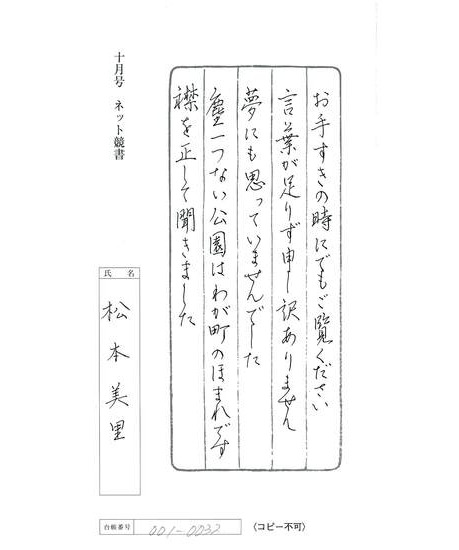 十月号 ネット競書
お手すきの時にでもご覧ください
言葉が足りず申し訳ありません
夢にも思っていませんでした
塵一つない公園はわが町のほまれです
襟を正して聞きました
氏名
松本美里
台帳番号 001-0032 (コピー不可)